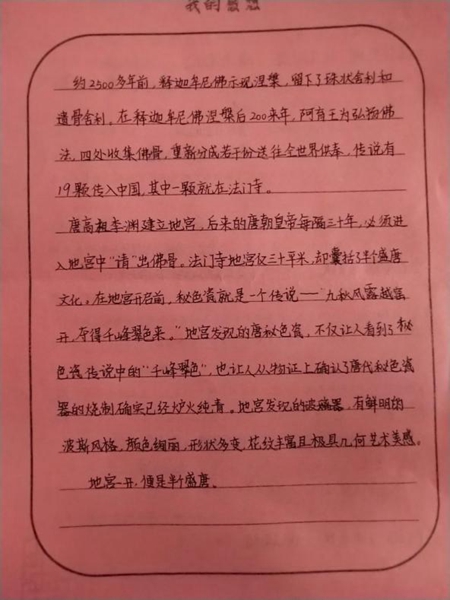 我的感想
约2500多年前，释迦牟尼佛示现涅槃，留下了珠状舍利和
遗骨舍利。在释迦牟尼佛涅槃后200来年，阿育王为弘扬佛
法，四处收集佛骨，重新分成若干份送往全世界供奉，传说有
19颗传入中国，其中一颗就在法门寺。
唐高祖李渊建立地宫，后来的唐朝皇帝每隔三十年，必须进
入地宫中“请”出佛骨。法门寺地宫仅三十平米，却囊括了半个盛唐
文化。在地宫开启前，秘色瓷就是一个传说——“九秋风露越窑
开，夺得千峰翠色来。”地宫发现的唐秘色瓷，不仅让人看到了秘
色瓷传说中的“千峰翠色”，也让人从物证上确认了唐代秘色瓷
器的烧制确实已经炉火纯青。地宫发现的玻璃器，有鲜明的
波斯风格，颜色绸丽，形状多变，花纹丰富且极具几何艺术美感。
地宫一开，便是半个盛唐。